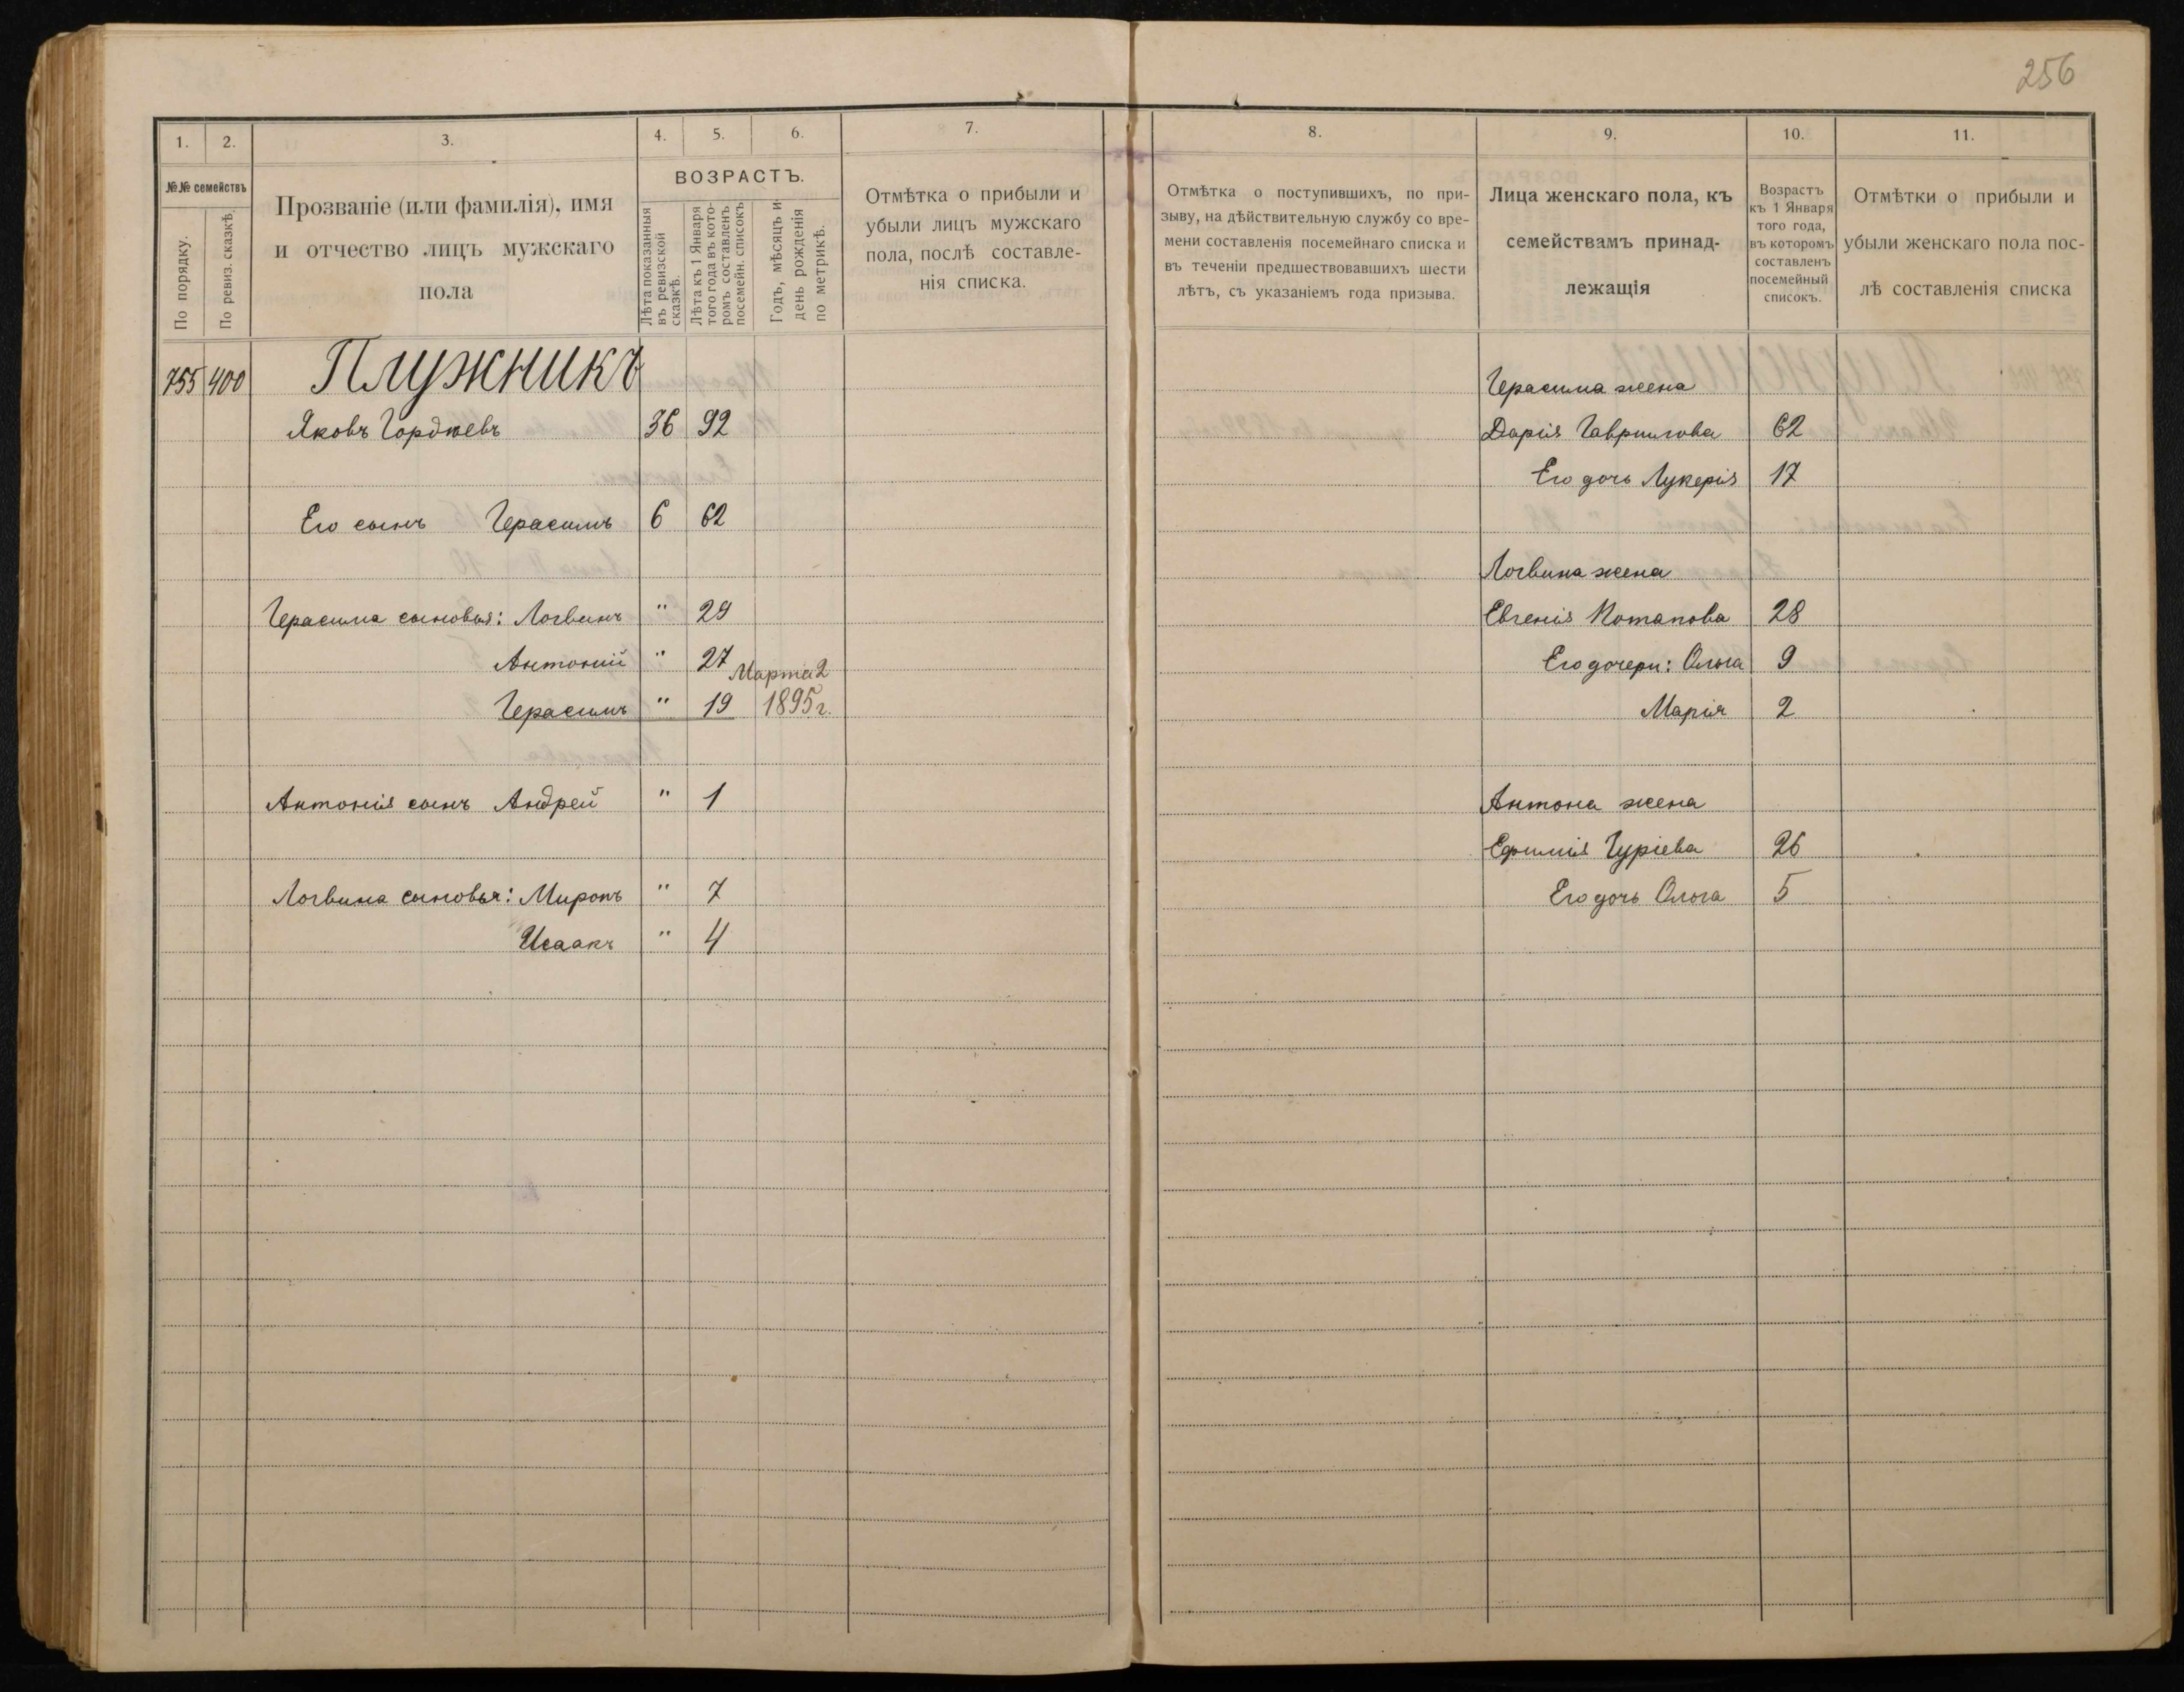 256
1. 2. 3. 4. 5. 6. 7.
№№ семействъ
По порядку.
По ревиз. сказкѣ.
Прозваніе (или фамилія), имя
и отчество лицъ мужскаго
пола
ВОЗРАСТЪ.
Лѣта показанныя
въ ревизской
сказкѣ.
Лѣта къ 1 Января
того года въ кото-
ромъ составленъ
посемейн. списокъ
Годъ, мѣсяцъ и
день рожденія
по метрикѣ.
Отмѣтка о прибыли и
убыли лицъ мужскаго
пола, послѣ составле-
нія списка.
755 400 Плужникъ
Яковъ Гордѣевъ 36 92
Его сынъ Герасимъ 6 62
Герасима сыновья: Логвинъ " 29
Антоній " 27
Марта 2
Герасимъ " 19 1895 г.
Антонія сынъ Андрей " 1
Логвина сыновья: Миронъ " 7
Исаакъ " 4
8. 9. 10. 11.
Отмѣтка о поступившихъ, по при-
зыву, на дѣйствительную службу со вре-
мени составленія посемейнаго списка и
въ теченіи предшествовавшихъ шести
лѣтъ, съ указаніемъ года призыва.
Лица женскаго пола, къ
семействамъ принад-
лежащія
Возрастъ
къ 1 Января
того года,
въ которомъ
составленъ
посемейный
списокъ.
Отмѣтки о прибыли и
убыли женскаго пола пос-
лѣ составленія списка
Герасима жена
Дарія Гаврилова 62
Его дочь Лукерія 17
Логвина жена
Евгенія Потапова 28
Его дочери: Ольга 9
Марія 2
Антона жена
Ефимія Гуріева 26
Его дочь Ольга 5